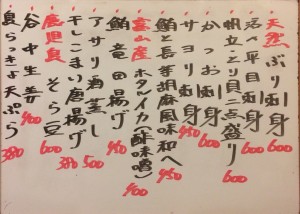 天然 ぶり刺身 600
活〆平目刺身 600
帆立とり貝二点盛り 600
かつお刺身 600
サヨリ刺身 450
鮪と長芋胡麻風味和へ 450
富山産 ホタルイカ(酢味噌) 400
鮪竜田揚げ 400
アサリ酒蒸し 500
干しこまい唐揚げ 380
鹿児島 そら豆 600
谷中生姜 400
島らっきょ天ぷら 380